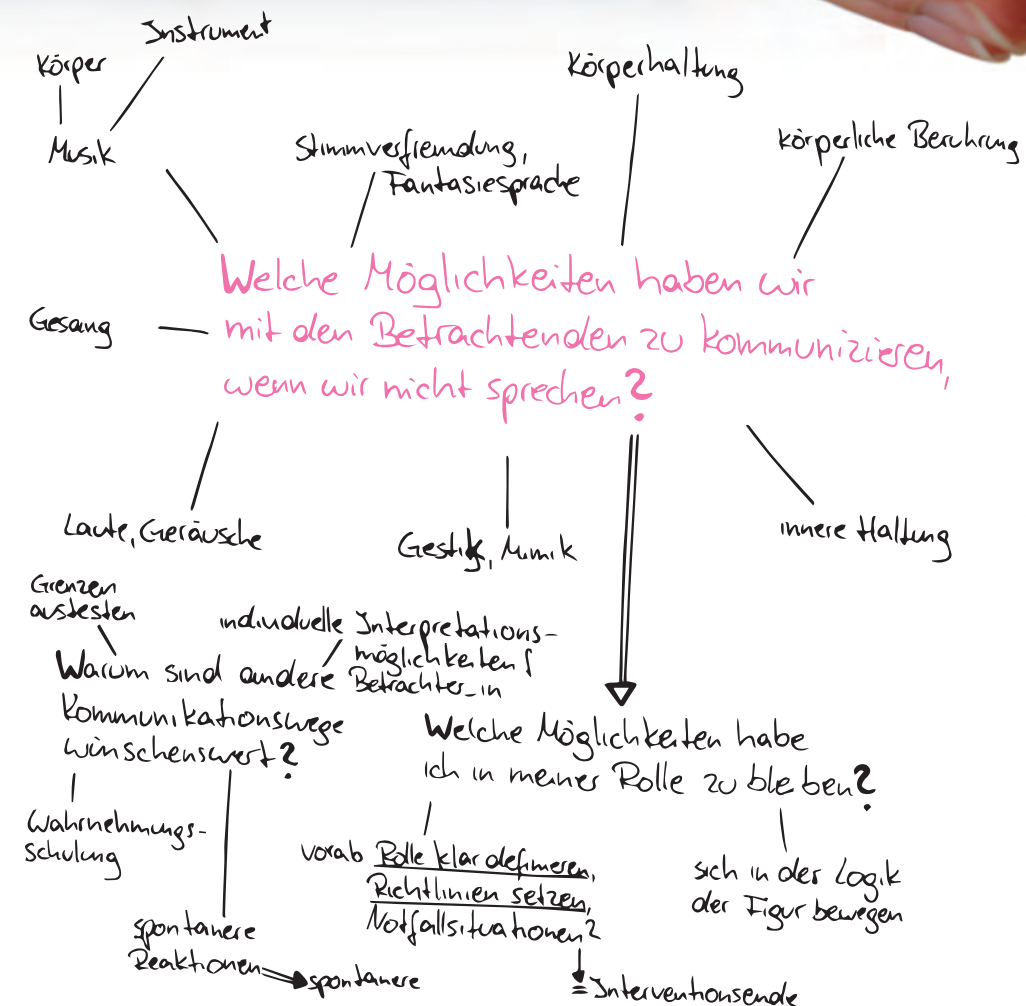 Instrument
Körper
Musik
Stimmverfremdung,
Fantasiesprache
Körperhaltung
körperliche Beruhrung
Welche Möglichkeiten haben wir
mit den Betrachtenden zu kommunizieren,
wenn wir nicht sprechen?
Gesang
Laute, Geräusche
Gestik, Mimik
innere Haltung
Grenzen
austesten
individuelle Interpretations-
möglichkeiten f
Betrachter_in
Warum sind andere
Kommunikationswege
wünschenswert?
Wahrnehmungs-
schulung
spontanere
Reaktionen
spontanere
Welche Möglichkeiten habe
ich in meiner Rolle zu bleiben?
vorab Rolle klar definieren,
Richtlinien setzen,
Notfallsituationen?
= Interventionsende
sich in der Logik
der Figur bewegen